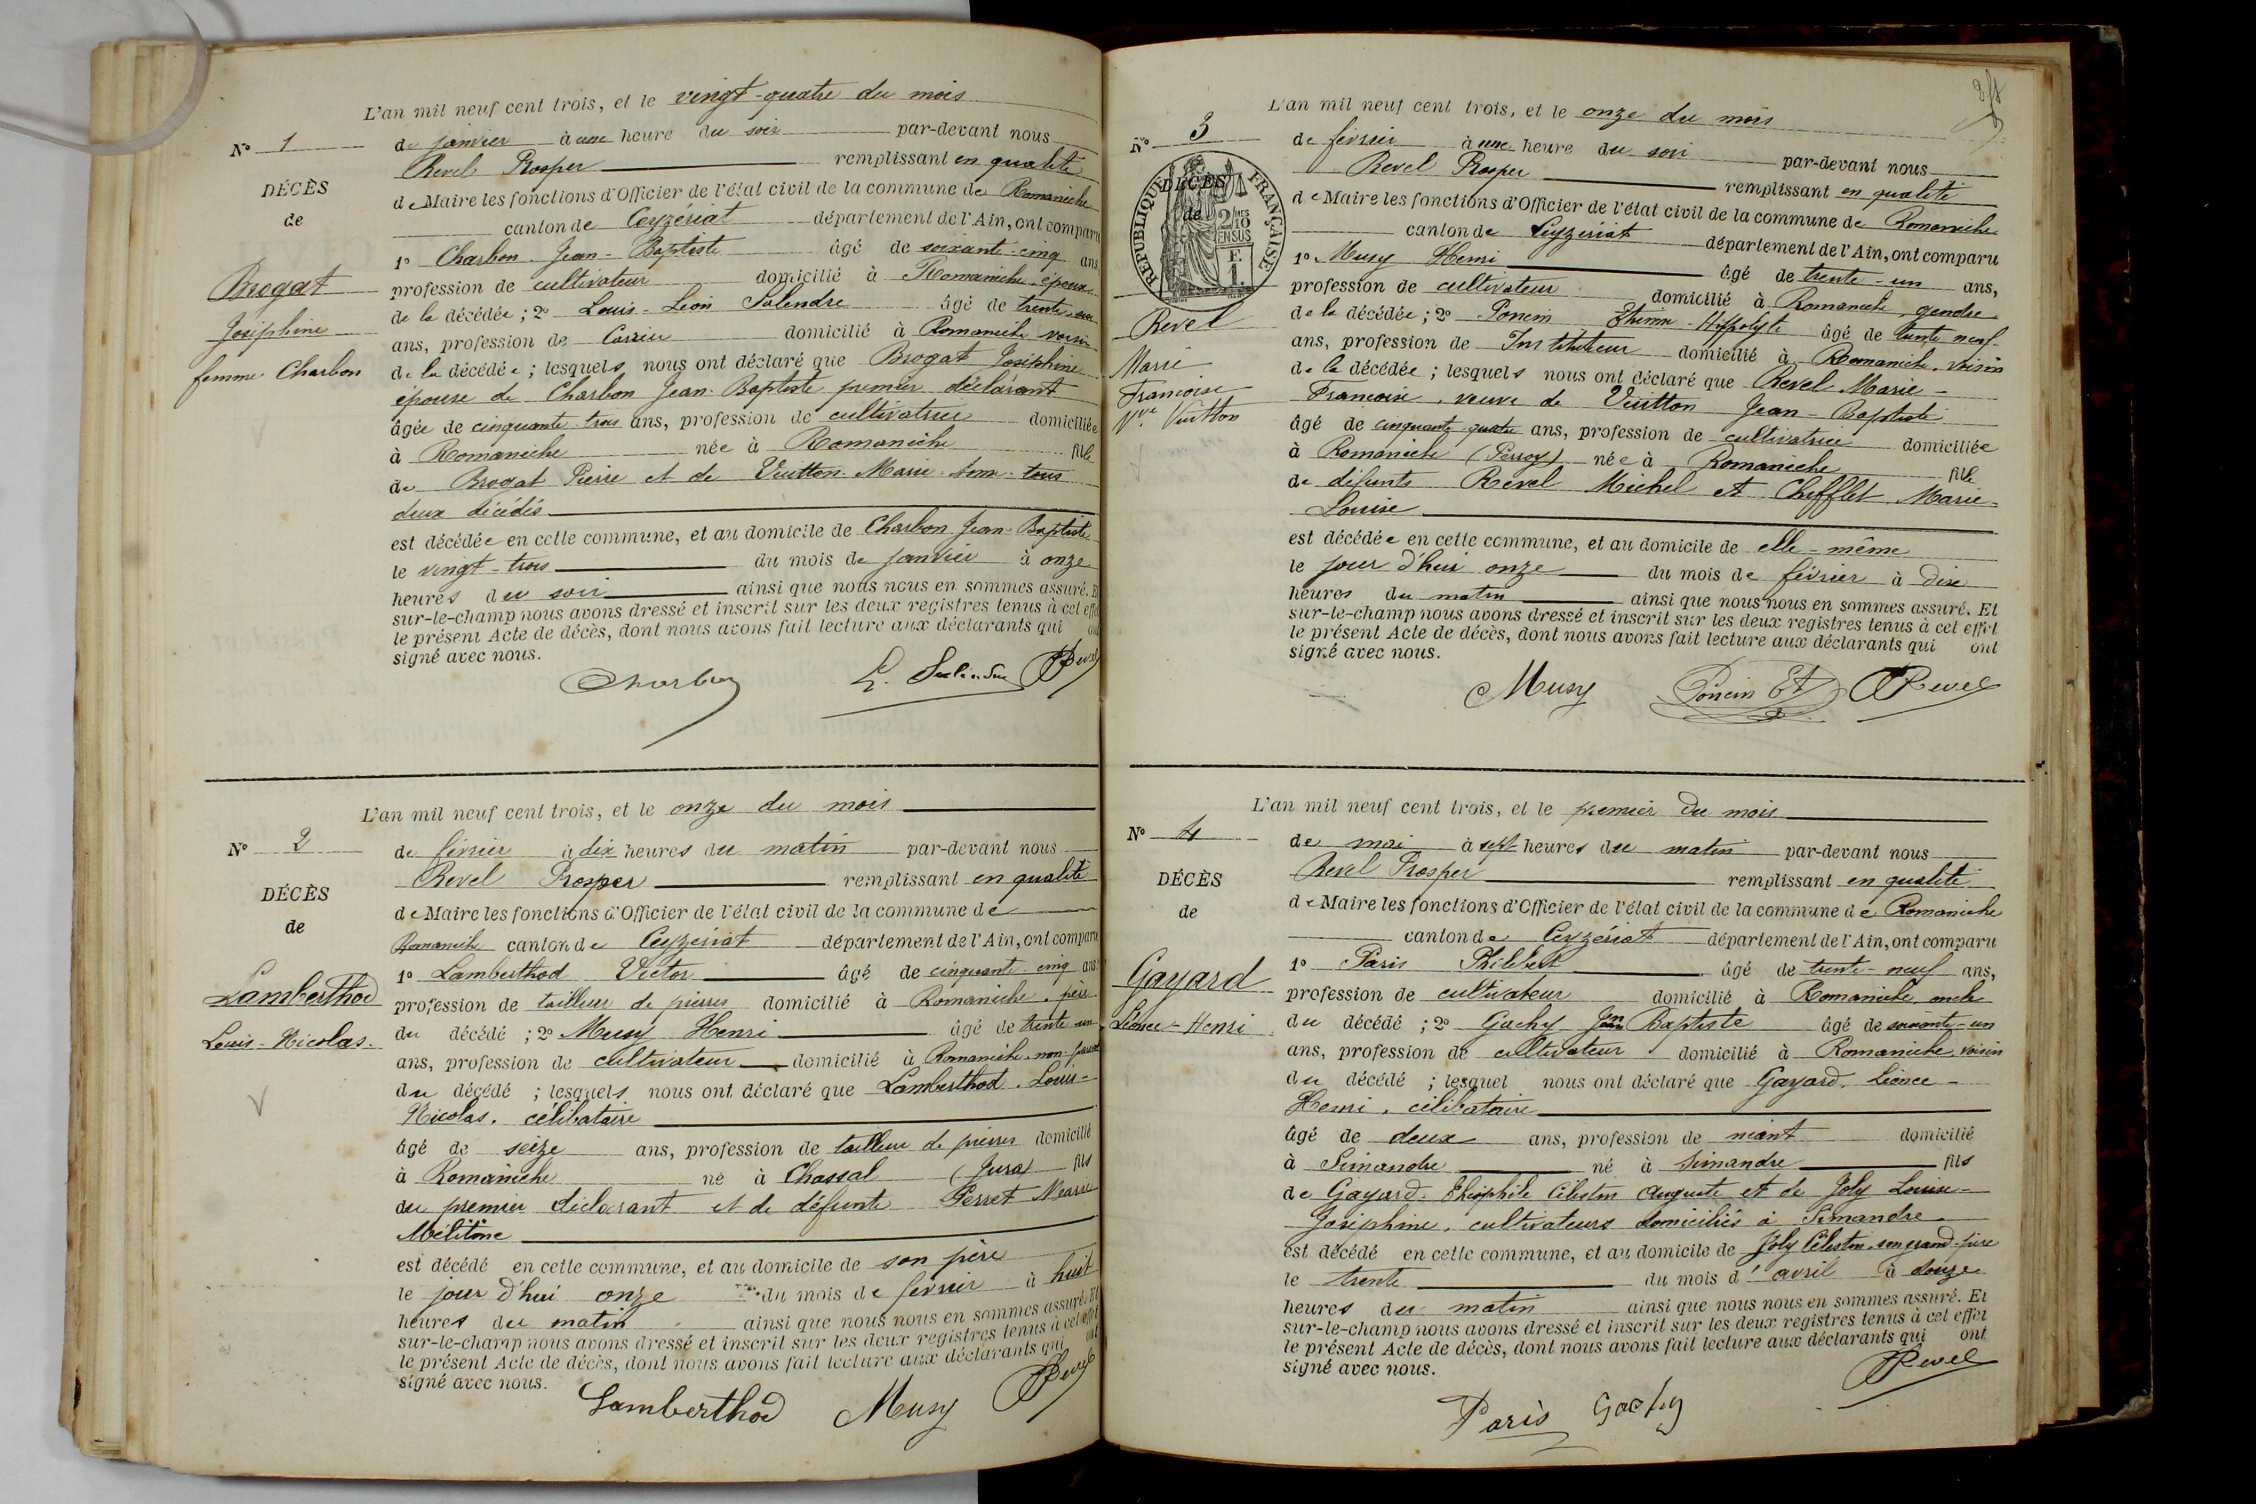 L'an mil neuf cent trois, et le vingt-quatre du mois
de janvier à une heure du soir par-devant nous
Revel Prosper remplissant en qualité
de Maire les fonctions d'Officier de l'état civil de la commune de Romanèche
canton de Ceyzériat département de l'Ain, ont comparu
1º Charbon Jean-Baptiste âgé de soixante-cinq ans
profession de cultivateur domicilié à Romanèche, époux
de la décédée ; 2º Louis-Léon Salendre âgé de trente-
ans, profession de domicilié à Romanèche voisin
de la décédée ; lesquels nous ont déclaré que Brogat Joséphine
épouse de Charbon Jean-Baptiste premier déclarant
âgée de cinquante-trois ans, profession de cultivatrice domiciliée
à Romanèche née à Romanèche fille
de Brogat Pierre et de Vuitton Marie tous
deux décédés
est décédée en cette commune, et au domicile de Charbon Jean-Baptiste
le vingt-trois du mois de janvier à onze
heures du soir ainsi que nous nous en sommes assuré. Et
sur-le-champ nous avons dressé et inscrit sur les deux registres tenus à cet effet
le présent Acte de décès, dont nous avons fait lecture aux déclarants qui ont
signé avec nous.
Charbon L. Salendre PRevel
Nº 1
DÉCÈS
de
Brogat
Joséphine
femme Charbon
L'an mil neuf cent trois, et le onze du mois
de février à dix heures du matin par-devant nous
Revel Prosper remplissant en qualité
de Maire les fonctions d'Officier de l'état civil de la commune de
Romanèche canton de Ceyzériat département de l'Ain, ont comparu
1º Lamberthod Victor âgé de cinquante-cinq ans
profession de tailleur de pierres domicilié à Romanèche, père
du décédé ; 2º Musy Henri âgé de trente-un
ans, profession de cultivateur domicilié à Romanèche non parent
du décédé ; lesquels nous ont déclaré que Lamberthod Louis-
Nicolas, célibataire
âgé de seize ans, profession de tailleur de pierres domicilié
à Romanèche né à Chassal (Jura) fils
du premier déclarant et de défunte Perret Marie
Mélitine
est décédé en cette commune, et au domicile de son père
le jour d'hui onze du mois de février à huit
heures du matin ainsi que nous nous en sommes assuré. Et
sur-le-champ nous avons dressé et inscrit sur les deux registres tenus à cet effet
le présent Acte de décès, dont nous avons fait lecture aux déclarants qui ont
signé avec nous.
Lamberthod Musy PRevel
Nº 2
DÉCÈS
de
Lamberthod
Louis-Nicolas
L'an mil neuf cent trois, et le onze du mois
de février à une heure du soir par-devant nous
Revel Prosper remplissant en qualité
de Maire les fonctions d'Officier de l'état civil de la commune de Romanèche
canton de Ceyzériat département de l'Ain, ont comparu
1º Musy Henri âgé de trente-un ans,
profession de cultivateur domicilié à Romanèche, gendre
de la décédée ; 2º Poncin Etienne Hippolyte âgé de trente neuf
ans, profession de Instituteur domicilié à Romanèche, voisin
de la décédée ; lesquels nous ont déclaré que Revel Marie-
Françoise, veuve de Vuitton Jean-Baptiste
âgé de cinquante quatre ans, profession de cultivatrice domiciliée
à Romanèche née à Romanèche fille
de défunts Revel Michel et Chifflet Marie-
Louise
est décédée en cette commune, et au domicile de elle-même
le jour d'hui onze du mois de février à dix
heures du matin ainsi que nous nous en sommes assuré. Et
sur-le-champ nous avons dressé et inscrit sur les deux registres tenus à cet effet
le présent Acte de décès, dont nous avons fait lecture aux déclarants qui ont
signé avec nous.
Musy Poncin Et PRevel
Nº 3
RÉPUBLIQUE FRANÇAISE
DÉCÈS
de
2/10 EN SUS
F. 1.
Revel
Marie
Françoise
Vve Vuitton
L'an mil neuf cent trois, et le premier du mois
de mai à sept heures du matin par-devant nous
Revel Prosper remplissant en qualité
de Maire les fonctions d'Officier de l'état civil de la commune de Romanèche
canton de Ceyzériat département de l'Ain, ont comparu
1º Paris Philibert âgé de trente-neuf ans,
profession de cultivateur domicilié à Romanèche oncle
du décédé ; 2º Gachy Jean Baptiste âgé de soixante-un
ans, profession de cultivateur domicilié à Romanèche, voisin
du décédé ; lesquel nous ont déclaré que Gayard, Léonce-
Henri, célibataire
âgé de deux ans, profession de néant domicilié
à Simandre né à Simandre fils
de Gayard Théophile Célestin Auguste et de Joly Louise-
Joséphine, cultivateurs domiciliés à Simandre
est décédé en cette commune, et au domicile de Joly Célestin, son grand-père
le trente du mois d'avril à
heures du matin ainsi que nous nous en sommes assuré. Et
sur-le-champ nous avons dressé et inscrit sur les deux registres tenus à cet effet
le présent Acte de décès, dont nous avons fait lecture aux déclarants qui ont
signé avec nous.
PRevel
Paris Gachy
Nº 4
DÉCÈS
de
Gayard
Léonce-Henri